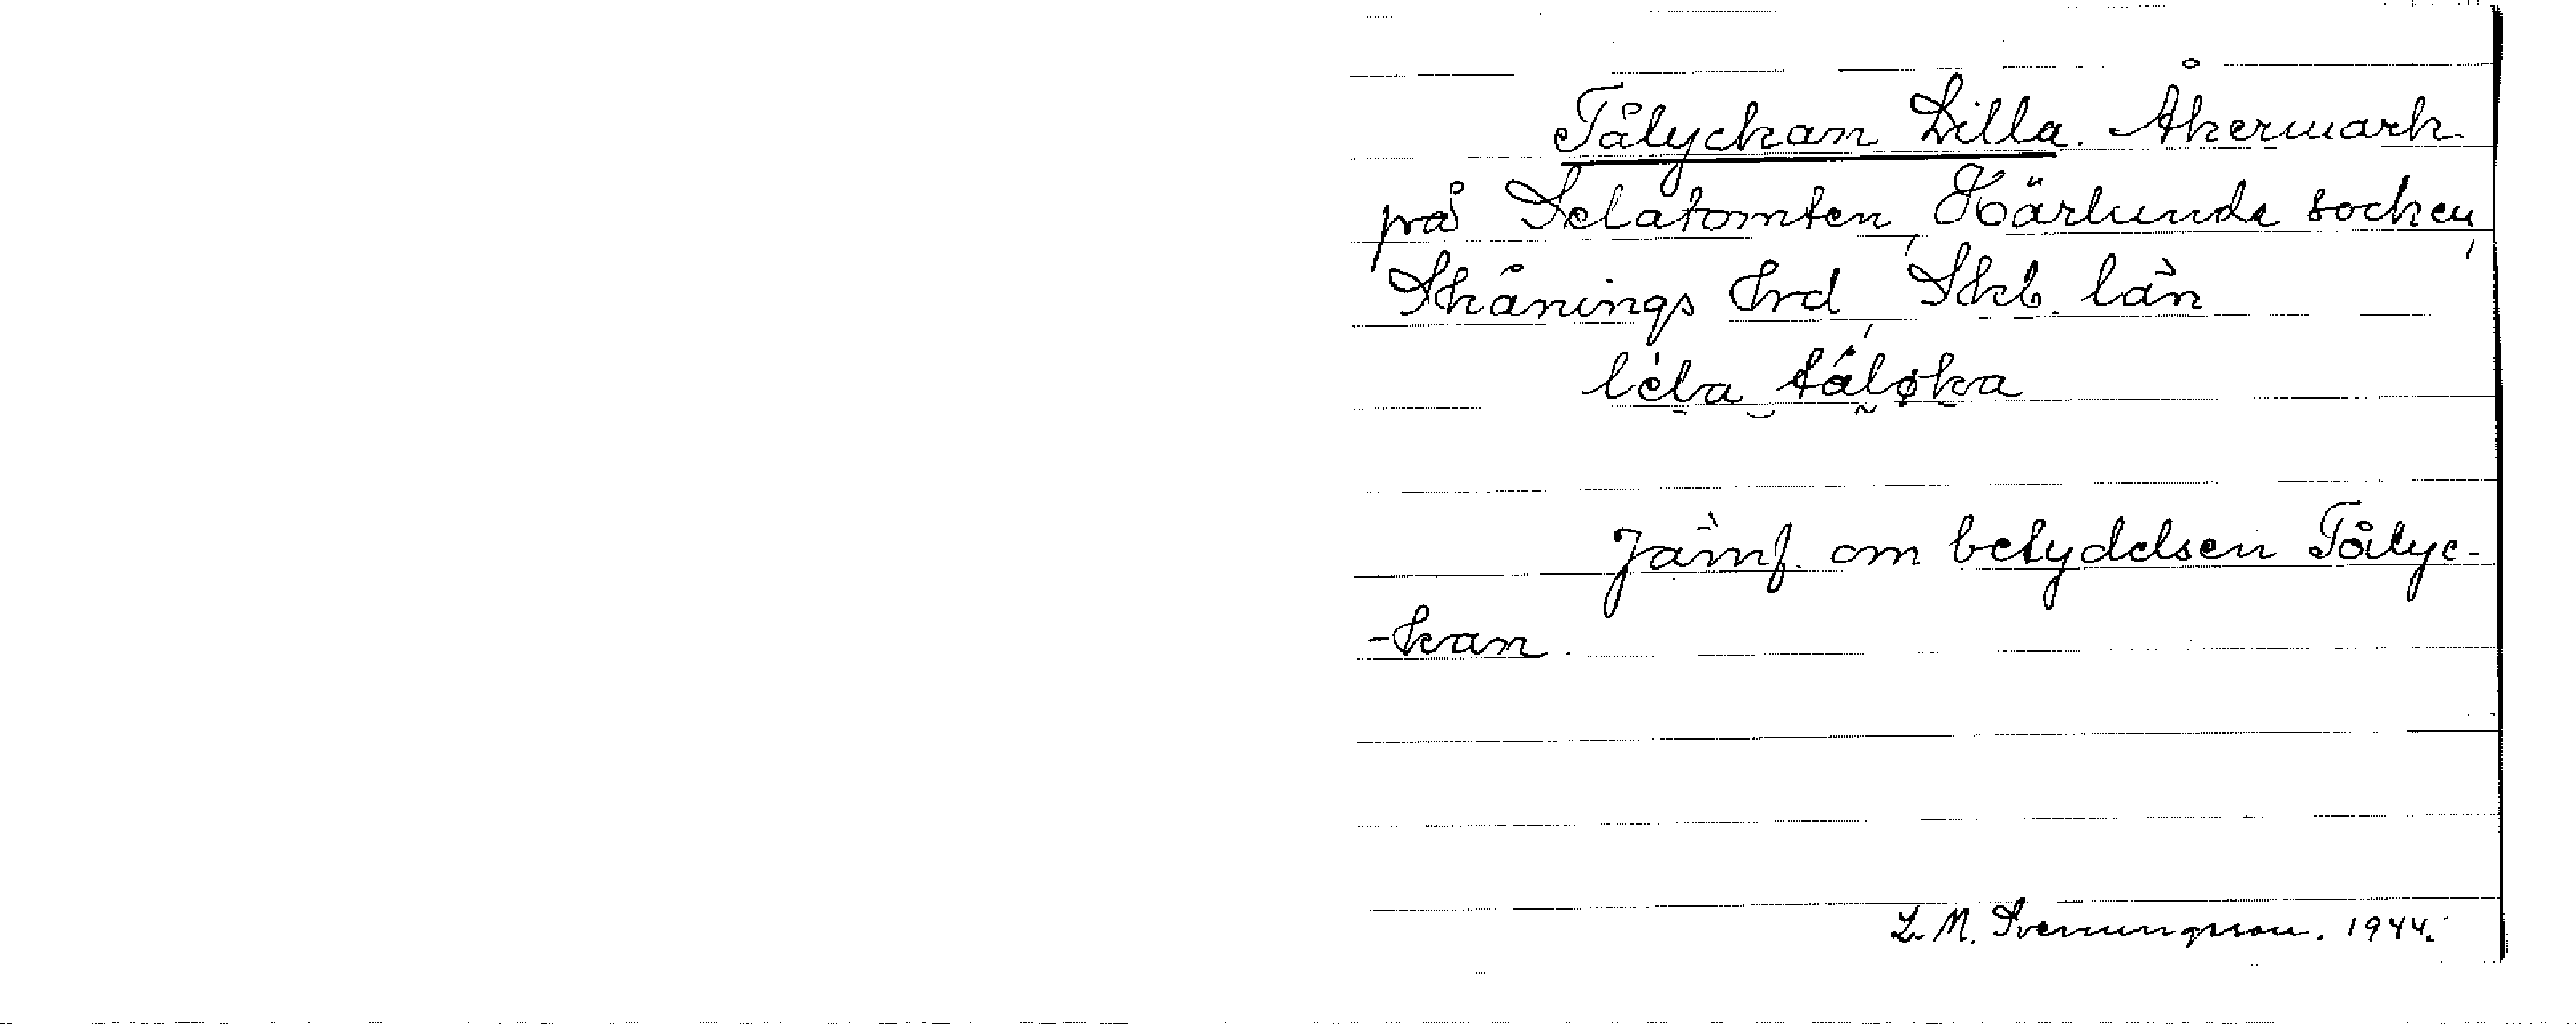 Tålyckan Lilla. Åkermark
på Selatomten, Härlunda socken,
Skånings Hrd, Skb. län
léla tåløka
Jämf. om betydelsen Tålyc-
-kan.
L. M. Svenungsson. 1944.